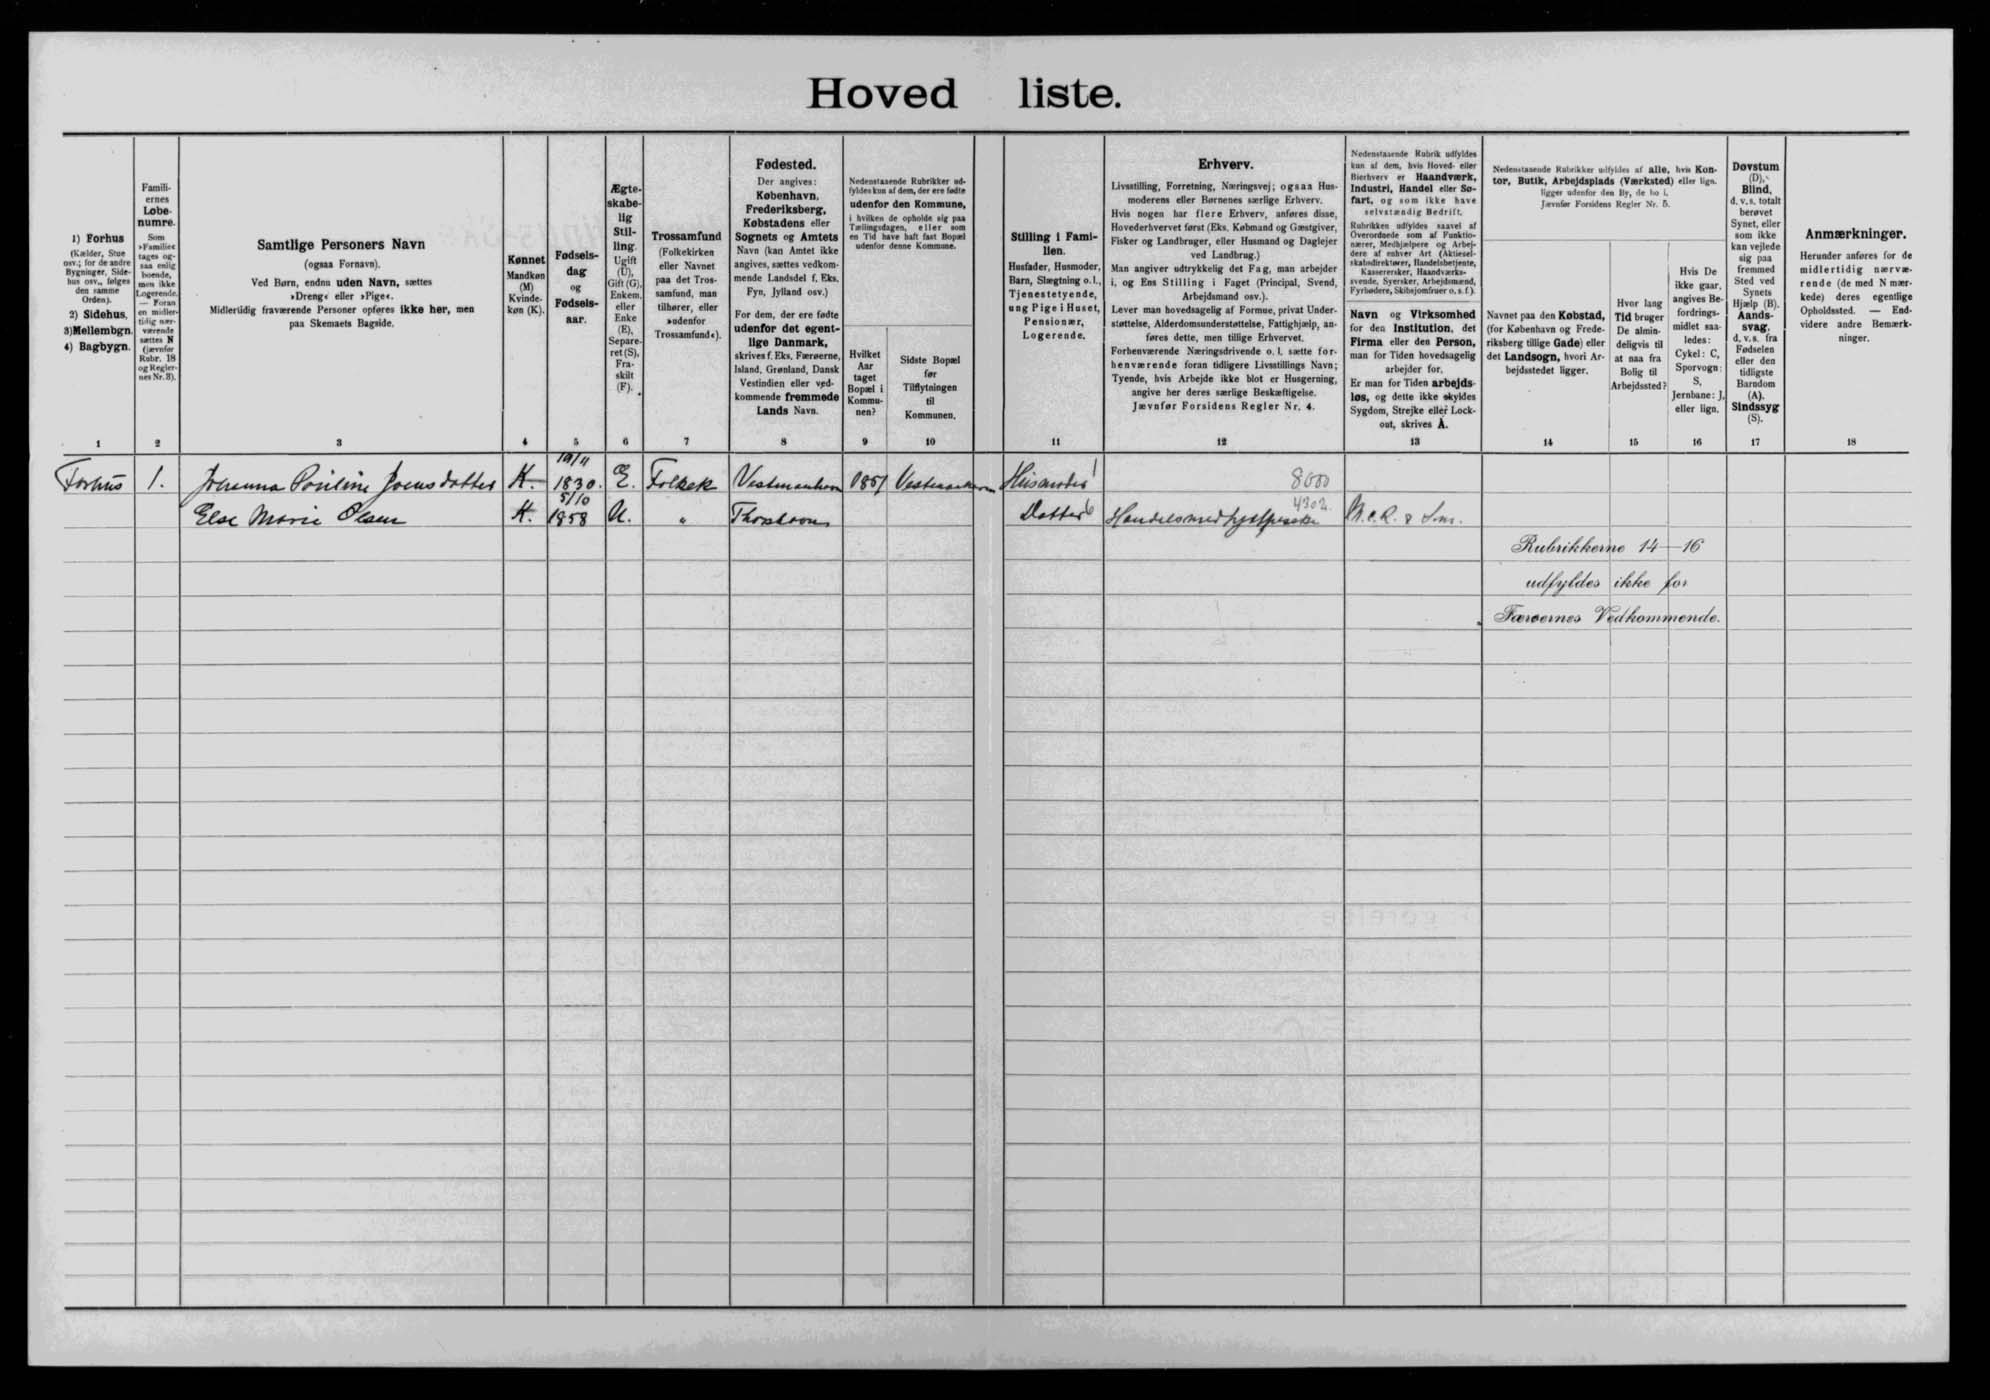 Hoved liste.
1) Forhus
(Kælder, Stue
osv.; for de andre
Bygninger, Side-
hus osv., følges
den samme
Orden).
2) Sidehus,
3) Mellembgn.
4) Bagbygn.
1
Famili-
ernes
Løbe-
numre.
Som
»Familie«
tages og-
saa enlig
boende,
men ikke
Logerende.
— Foran
en midler-
tidig nær-
værende
sættes N
(jævnfør
Rubr. 18
og Regler-
nes Nr. 3).
2
Samtlige Personers Navn
(ogsaa Fornavn).
Ved Børn, endnu uden Navn, sættes
»Dreng« eller »Pige«.
Midlertidig fraværende Personer opføres ikke her, men
paa Skemaets Bagside.
3
Kønnet
Mandkøn
(M)
Kvinde-
køn (K).
4
Fødsels-
dag
og
Fødsels-
aar.
5
Ægte-
skabe-
lig
Stil-
ling.
Ugift
(U),
Gift (G),
Enkem.
eller
Enke
(E),
Separe-
ret (S),
Fra-
skilt
(F).
6
Trossamfund
(Folkekirken
eller Navnet
paa det Tros-
samfund, man
tilhører, eller
»udenfor
Trossamfund«).
7
Fødested.
Der angives:
København,
Frederiksberg,
Købstadens eller
Sognets og Amtets
Navn (kan Amtet ikke
angives, sættes vedkom-
mende Landsdel f. Eks.
Fyn, Jylland osv.)
For dem, der ere fødte
udenfor det egent-
lige Danmark,
skrives f. Eks. Færøerne,
Island, Grønland, Dansk
Vestindien eller ved-
kommende fremmede
Lands Navn.
8
Nedenstaaende Rubrikker ud-
fyldes kun af dem, der ere fødte
udenfor den Kommune,
i hvilken de opholde sig paa
Tællingsdagen, eller som
en Tid have haft fast Bopæl
udenfor denne Kommune.
Hvilket
Aar
taget
Bopæl i
Kommu-
nen?
9
Sidste Bopæl
før
Tilflytningen
til
Kommunen.
10
Stilling i Fami-
lien.
Husfader, Husmoder,
Barn, Slægtning o. l.,
Tjenestetyende,
ung Pige i Huset,
Pensionær,
Logerende.
11
Erhverv.
Livsstilling, Forretning, Næringsvej; ogsaa Hus-
moderens eller Børnenes særlige Erhverv.
Hvis nogen har flere Erhverv, anføres disse,
Hovederhvervet først (Eks. Købmand og Gæstgiver,
Fisker og Landbruger, eller Husmand og Daglejer
ved Landbrug.)
Man angiver udtrykkelig det Fag, man arbejder
i, og Ens Stilling i Faget (Principal, Svend,
Arbejdsmand osv.).
Lever man hovedsagelig af Formue, privat Under-
støttelse, Alderdomsunderstøttelse, Fattighjælp, an-
føres dette, men tillige Erhvervet.
Forhenværende Næringsdrivende o. l. sætte for-
henværende foran tidligere Livsstillings Navn;
Tyende, hvis Arbejde ikke blot er Husgerning,
angive her deres særlige Beskæftigelse.
Jævnfør Forsidens Regler Nr. 4.
12
Nedenstaaende Rubrik udfyldes
kun af dem, hvis Hoved- eller
Bierhverv er Haandværk,
Industri, Handel eller Sø-
fart, og som ikke have
selvstændig Bedrift.
Rubrikken udfyldes saavel af
Overordnede som af Funktio-
nærer, Medhjælpere og Arbej-
dere af enhver Art (Aktiesel-
skabsdirektører, Handelsbetjente,
Kassererske, Haandværks-
svende, Syersker, Arbejdsmænd,
Fyrbødere, Skibsjomfruer o. s. f.).
Navn og Virksomhed
for den Institution, det
Firma eller den Person,
man for Tiden hovedsagelig
arbejder for.
Er man for Tiden arbejds-
løs, og dette ikke skyldes
Sygdom, Strejke eller Lock-
out, skrives A.
13
Nedenstaaende Rubrikker udfyldes af alle, hvis Kon-
tor, Butik, Arbejdsplads (Værksted) eller lign.
ligger udenfor den By, de bo i.
Jævnfør Forsidens Regler Nr. 5.
Navnet paa den Købstad,
(for København og Frede-
riksberg tillige Gade) eller
det Landsogn, hvori Ar-
bejdsstedet ligger.
14
Hvor lang
Tid bruger
De almin-
deligvis til
at naa fra
Bolig til
Arbejdssted?
15
Hvis De
ikke gaar,
angives Be-
fordrings-
midlet saa-
ledes:
Cykel: C,
Sporvogn:
S,
Jernbane: J,
eller lign.
16
Døvstum
(D),
Blind,
d. v. s. totalt
berøvet
Synet, eller
som ikke
kan vejlede
sig paa
fremmed
Sted ved
Synets
Hjælp (B).
Aands-
svag,
d. v. s. fra
Fødselen
eller den
tidligste
Barndom
(A).
Sindssyg
(S).
17
Anmærkninger.
Herunder anføres for de
midlertidig nærvæ-
rende (de med N mær-
kede) deres egentlige
Opholdssted. — End-
videre andre Bemærk-
ninger.
18
Forhus 1. Johanna Pouline Joensdatter K. 19/11 1830. E. Folkek Vestmanhavn 1851 Vestmanhavn Husmoder 1 8600
Else Marie Olsen K. 5/10 1858 U. " Thorshavn Datter 6 4302. M.C.R. & Søn.
Rubrikkerne 14-16
udfyldes ikke for
Færøernes Vedkommende.